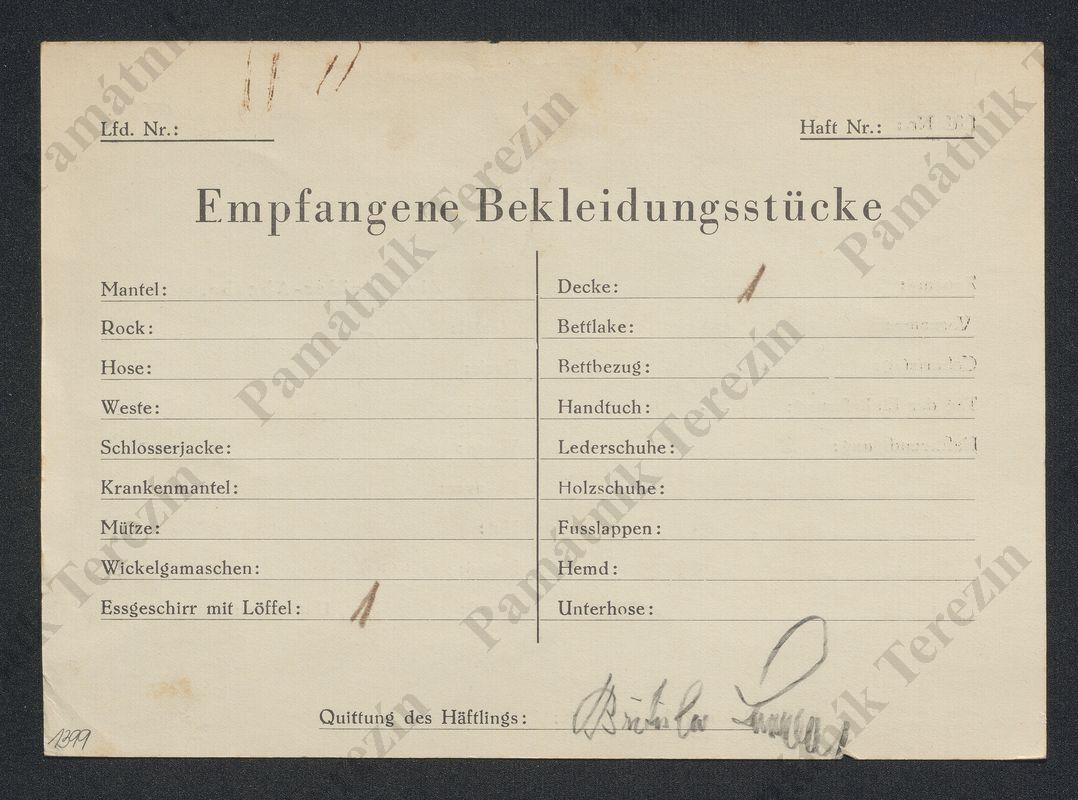 Lfd. Nr.:
Haft Nr.:
Empfangene Bekleidungsstücke
Mantel:
Rock:
Hose:
Weste:
Schlosserjacke:
Krankenmantel:
Mütze:
Wickelgamaschen:
Essgeschirr mit Löffel: 1
Decke: 1
Bettlake:
Bettbezug:
Handtuch:
Lederschuhe:
Holzschuhe:
Fusslappen:
Hemd:
Unterhose:
Quittung des Häftlings:
1399
Památník Terezín